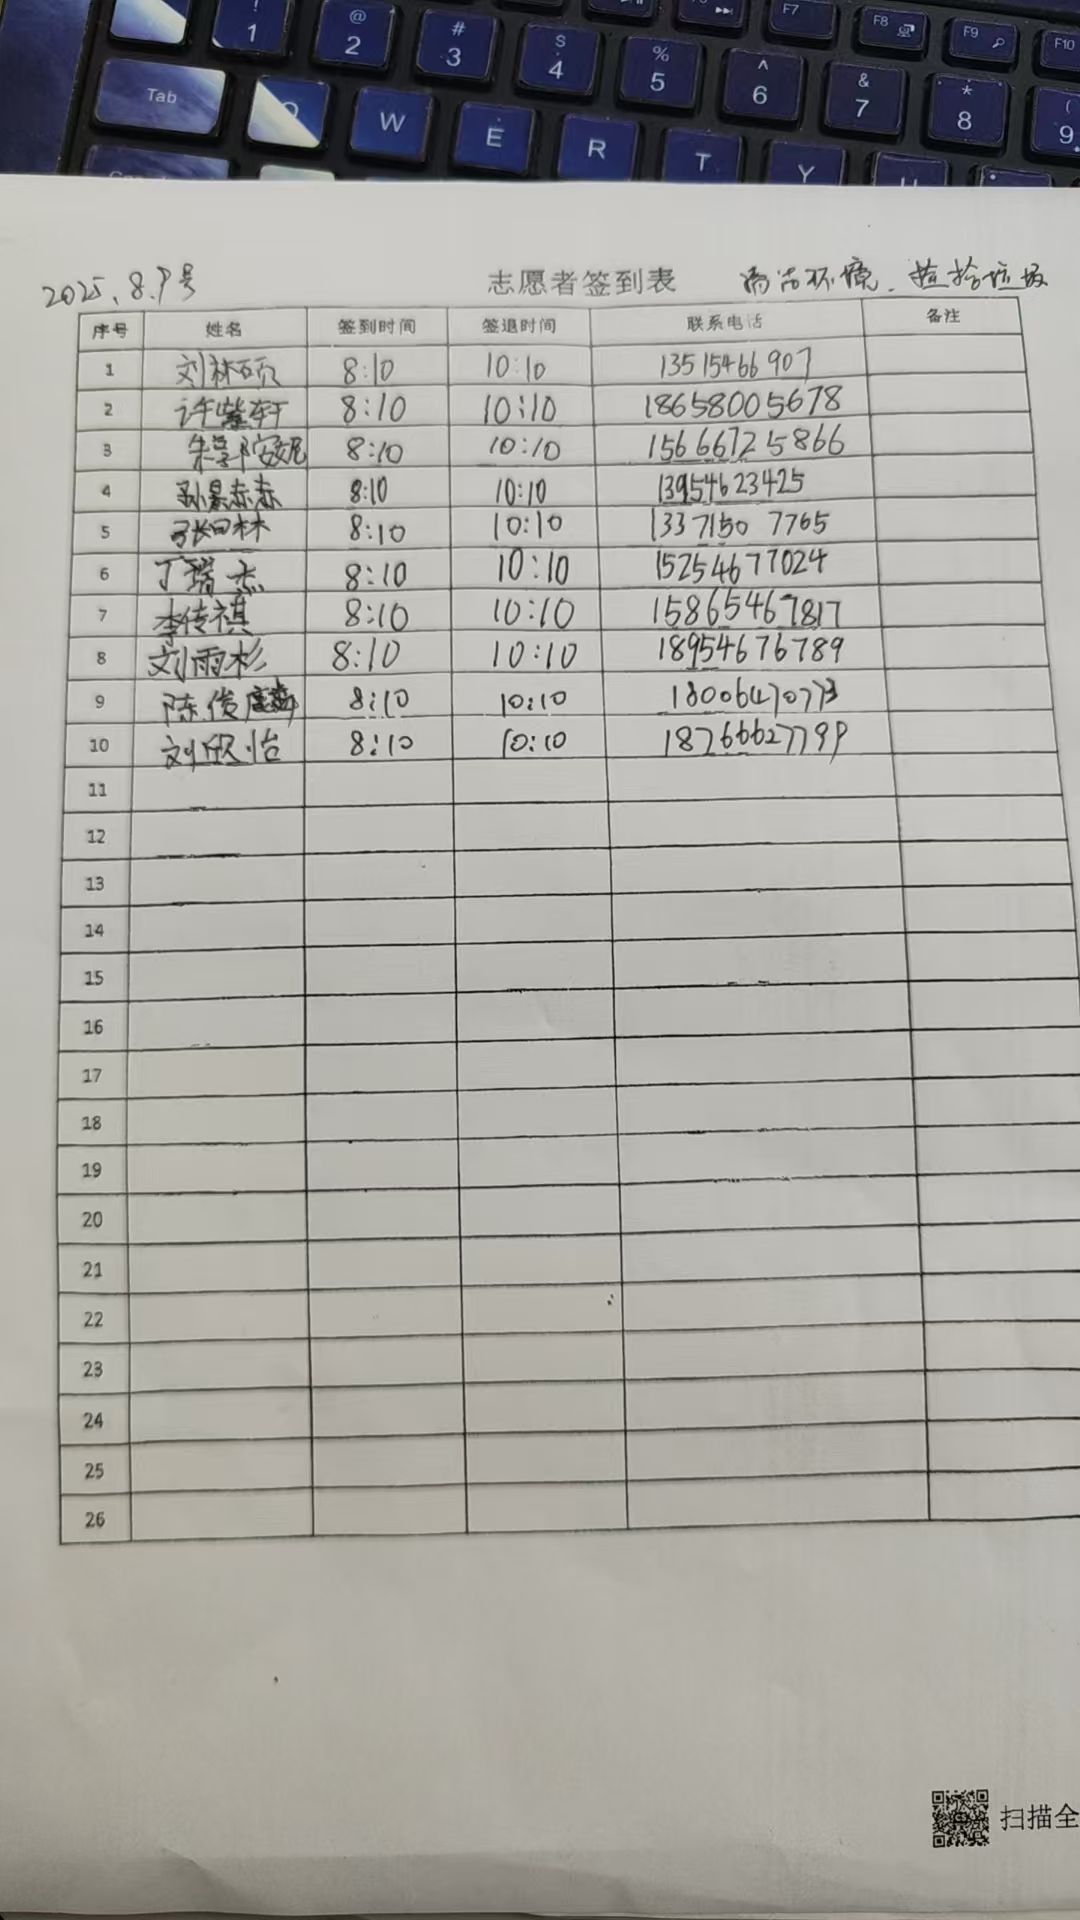 ! 1
@ 2
# 3
$ 4
% 5
^ 6
& 7
* 8
( 9
F7
F8
F9
F10
Tab
W
E
R
T
Y
2025.8.9号 志愿者签到表 清洁环境.捡拾垃圾
序号 姓名 签到时间 签退时间 联系电话 备注
1 刘林硕 8:10 10:10 13515466907
2 许紫轩 8:10 10:10 18658005678
3 朱郭安妮 8:10 10:10 15666725866
4 孙 8:10 10:10 13954623425
5 张 林 8:10 10:10 13371507765
6 丁瑞杰 8:10 10:10 15254677024
7 李传祺 8:10 10:10 15865467817
8 刘雨杉 8:10 10:10 18954676789
9 陈俊麟 8:10 10:10
10 刘欣怡 8:10 10:10 18766627799
11
12
13
14
15
16
17
18
19
20
21
22
23
24
25
26
扫描全